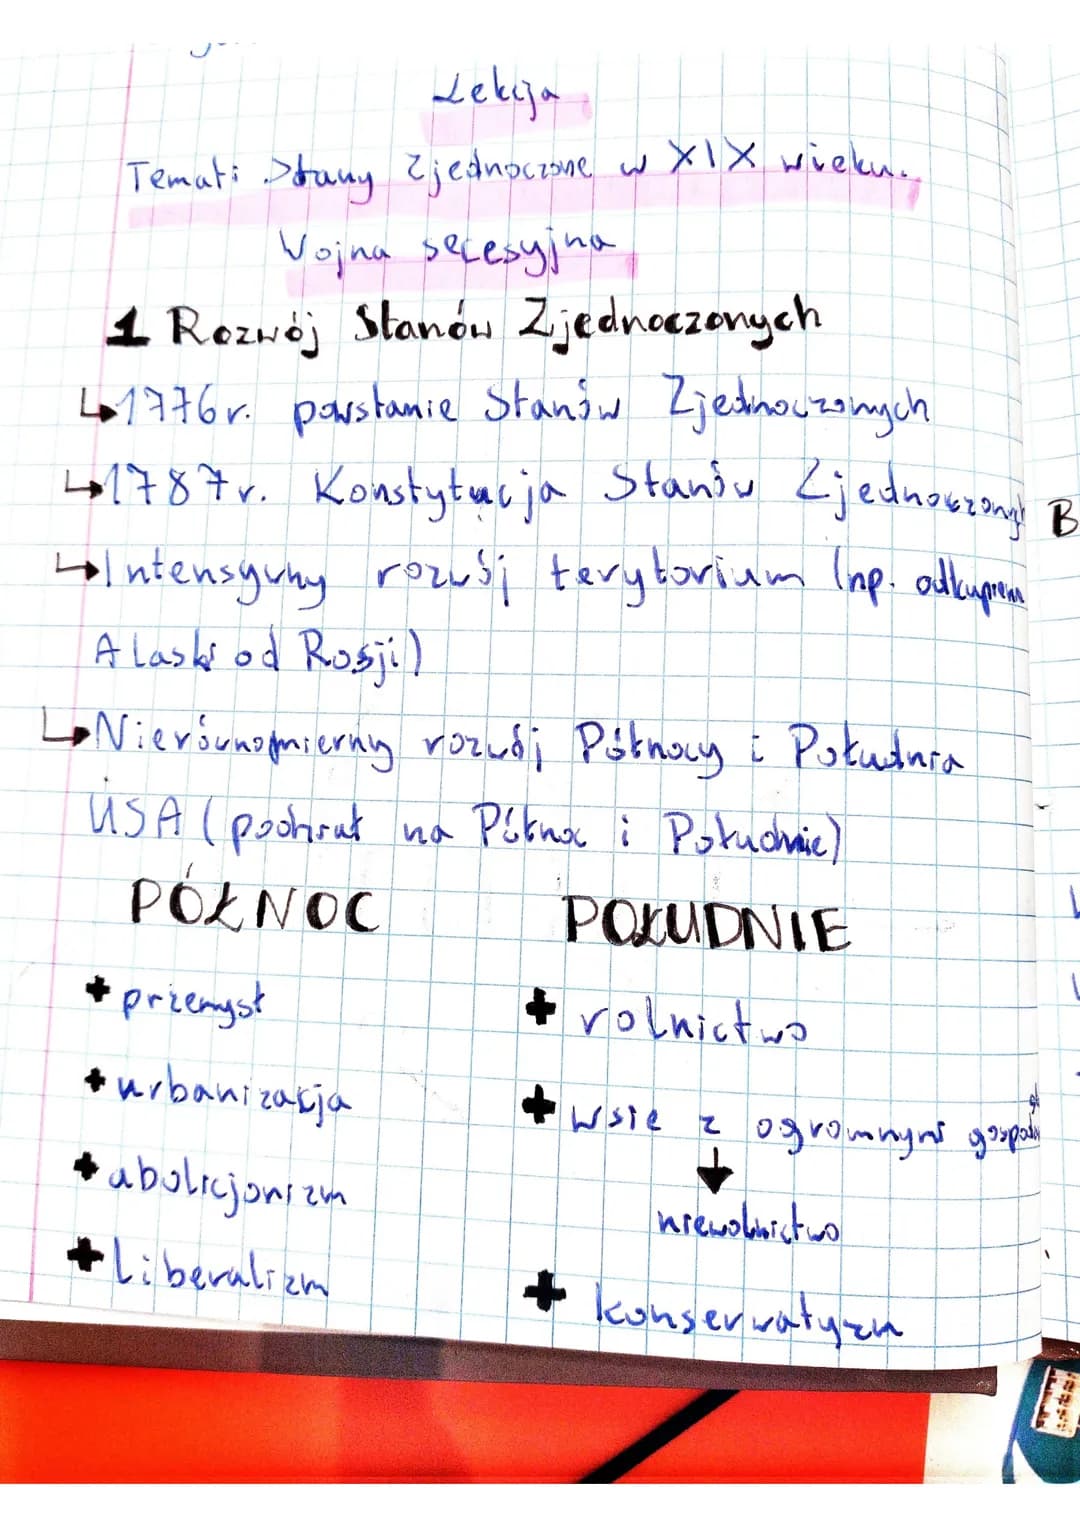 Lekcja
Temat: Stany Zjednoczone w XIX wieku.
Wojna secesyjna
1 Rozwój Stanów Zjednoczonych
↳1776r. powstanie Stanów Zjednoczonych
↳1787r. Konstytucja Stanów Zjednoczonych
↳Intensywny rozwój terytorium (np. odkupienie
Alaski od Rosji)
↳Nierównomierny rozwój Północy i Południa
USA (podział na Północ i Południe)
PÓŁNOC POŁUDNIE
+ przemysł + rolnictwo
+ urbanizacja + wsie z ogromnymi
↓
+ abolicjonizm niewolnictwo
+ Liberalizm + konserwatyzm
B